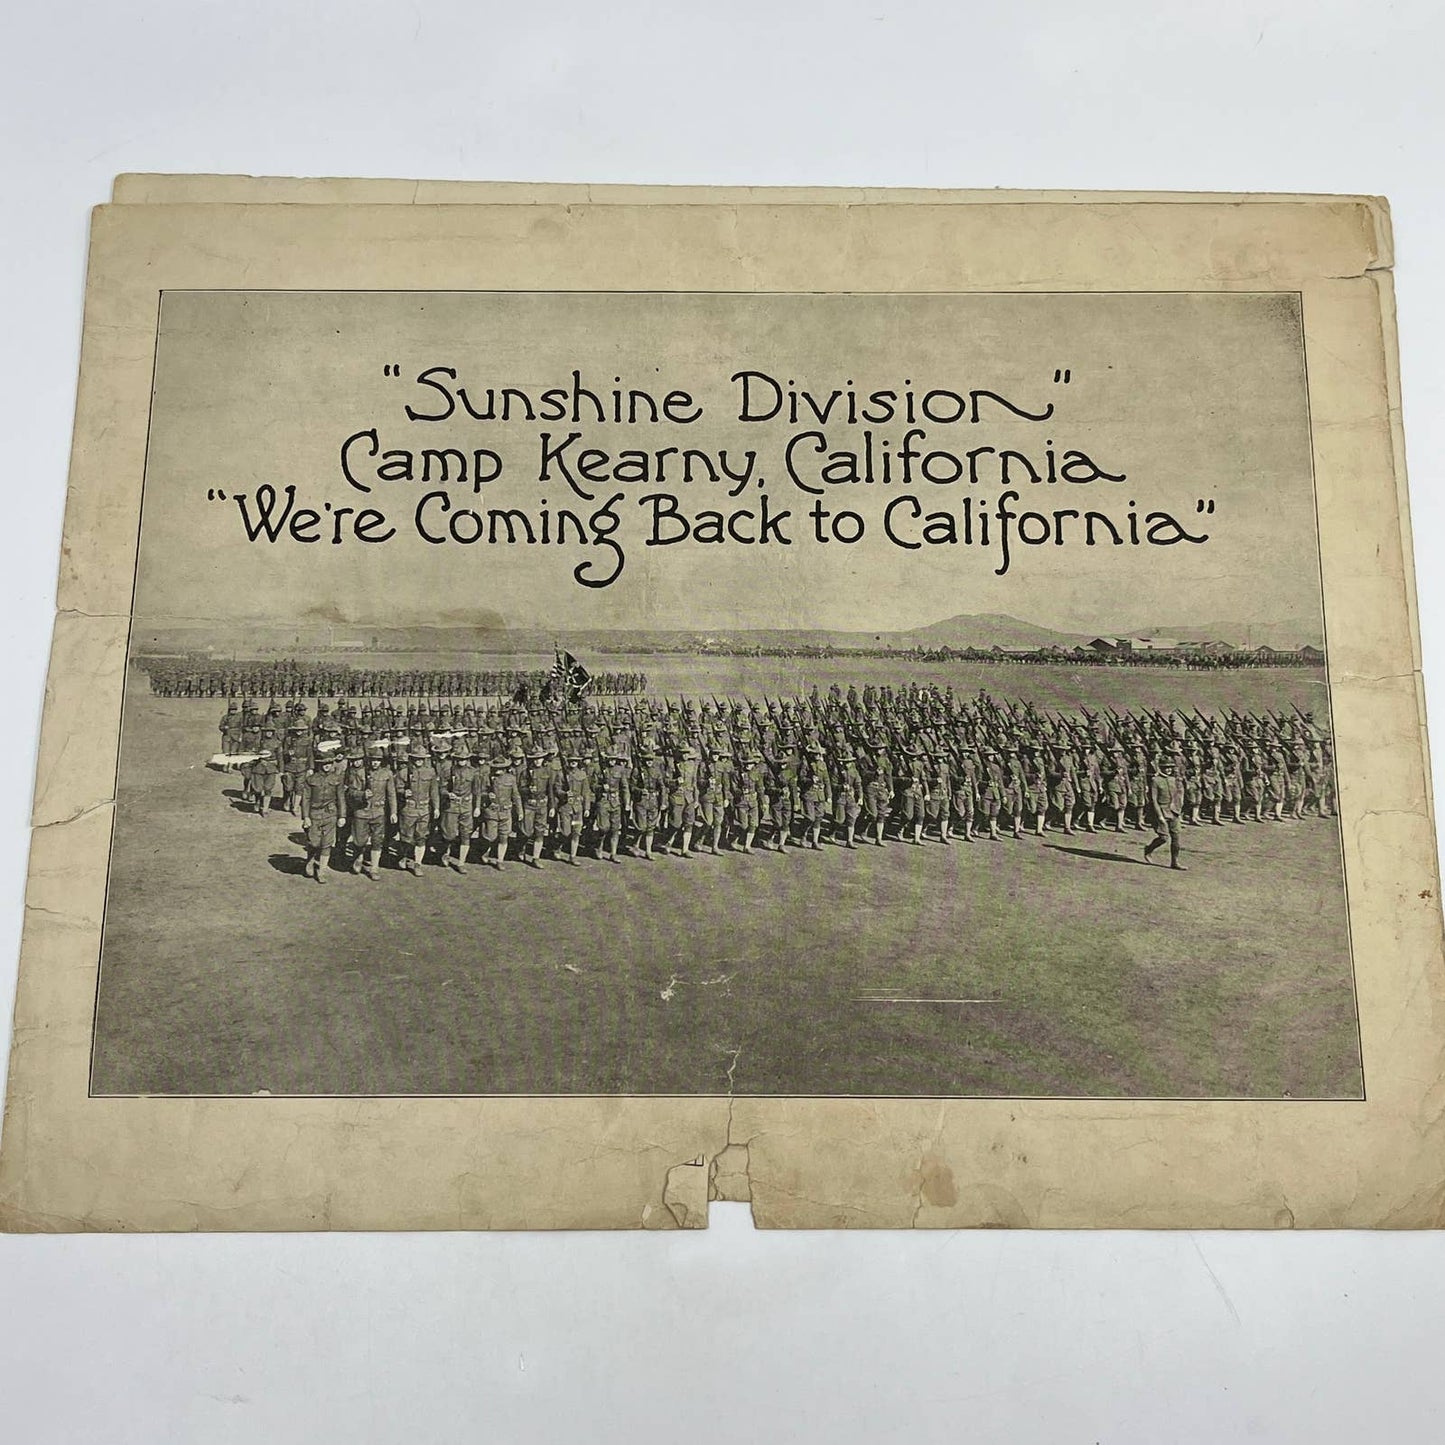 “Sunshine Division”
Camp Kearny, California
“We're Coming Back to California”